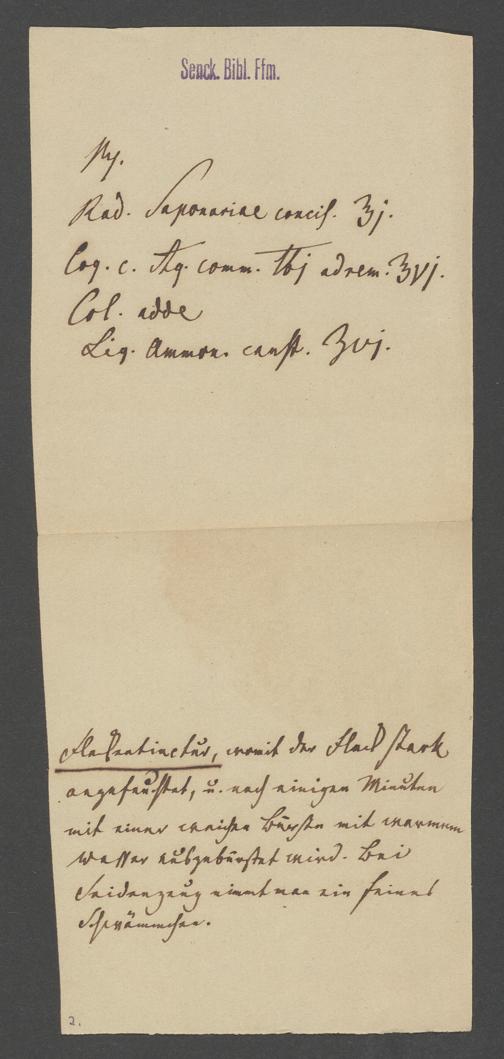 Senck. Bibl. Ffm.
Rp.
Rad. Saponariae concis. ℥j.
Coq. c. Aq. comm. ℔j ad rem. ℥vj.
Col. adde
Liq. Ammon. caust. ʒvj.
Fleckentinctur, womit der Fleck stark
angefeuchtet, u. nach einigen Minuten
mit einer weichen Bürste mit warmem
Wasser ausgebürstet wird. Bei
Seidenzeug nimmt man ein feines
Schwämmchen.
2.